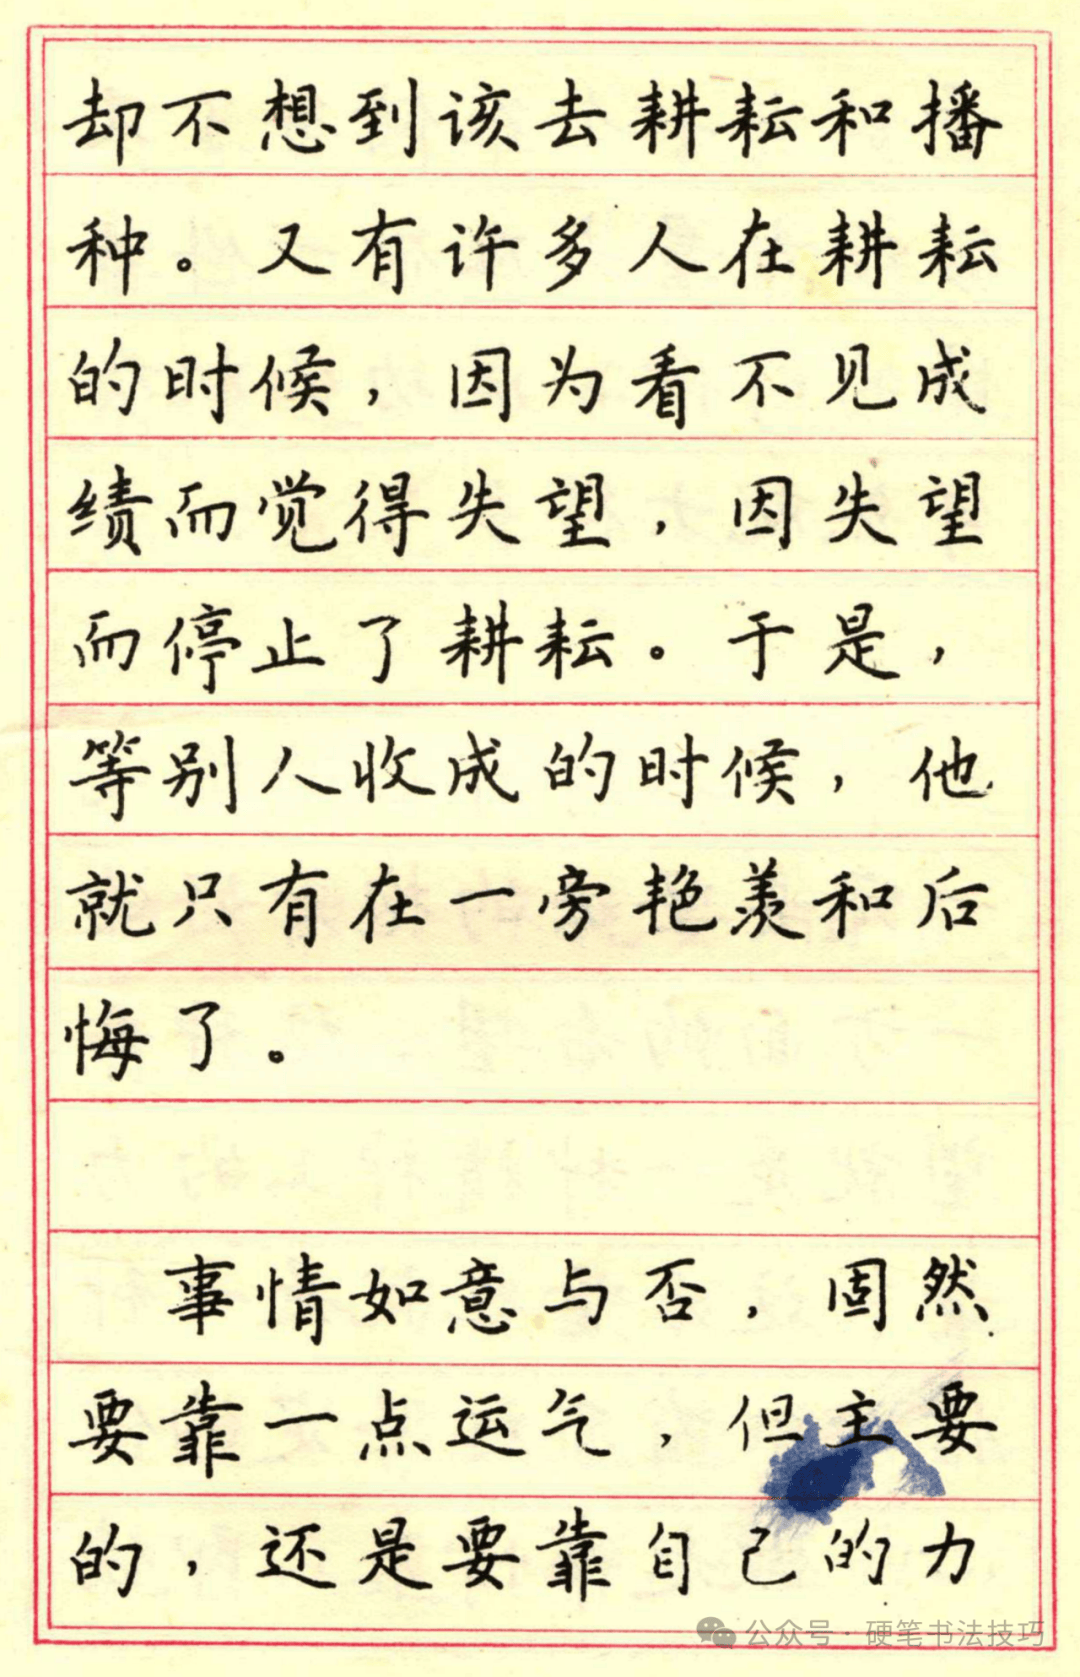 却不想到该去耕耘和播
种。又有许多人在耕耘
的时候，因为看不见成
绩而觉得失望，因失望
而停止了耕耘。于是，
等别人收成的时候，他
就只有在一旁艳羡和后
悔了。
事情如意与否，固然
要靠一点运气，但主要
的，还是要靠自己的力
公众号·硬笔书法技巧